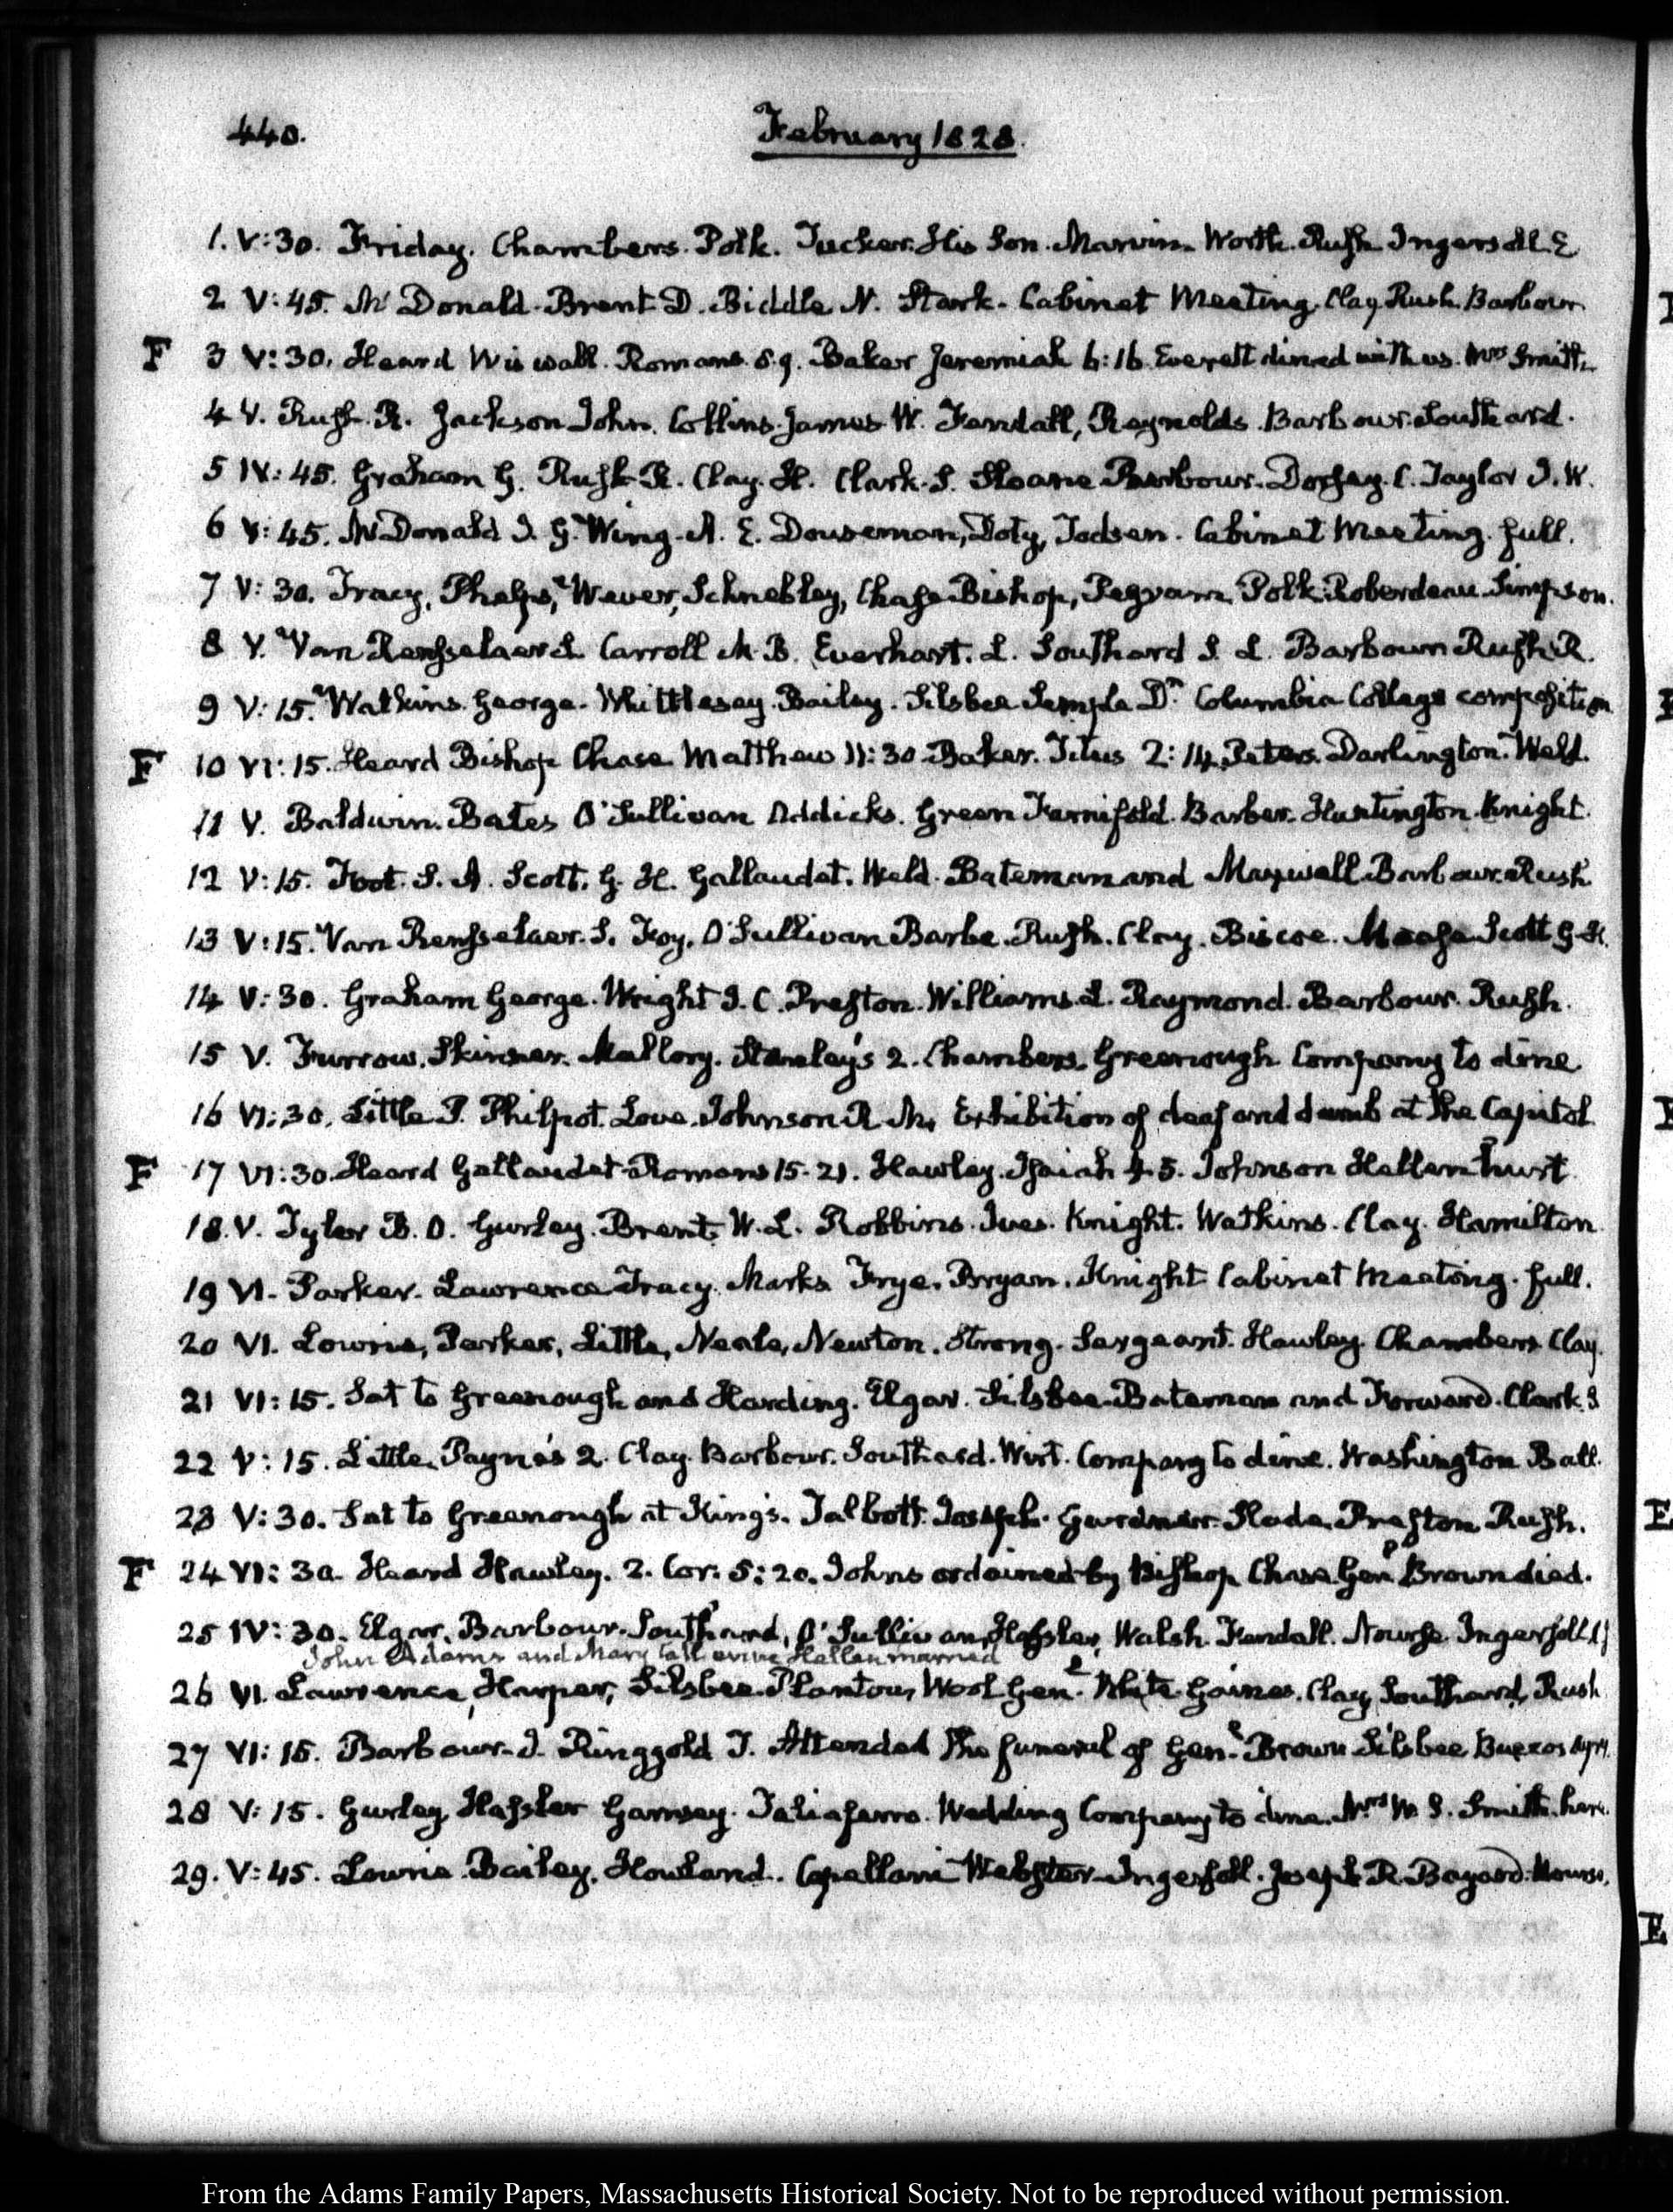 440.
February 1828.
1. V:30. Friday. Chambers. Polk. Tucker. His Son. Marvin. Worth. Rush Ingersoll. E
2 V:45. McDonald. Brent D. Biddle N. Stark. Cabinet Meeting. Clay Rush Barbour
F 3 V:30. Heard Wiswall. Romans 8.9. Baker Jeremiah 6:16. Everett dined with us. Mrs Smith
4 V. Rush. R. Jackson John. Collins James W. Kendall, Reynolds. Barbour. Southard.
5 IV:45. Graham G. Rush R. Clay. H. Clark. S. Sloane Barbour. Dorsey. C. Taylor J. W.
6 V:45. McDonald J. G. Wing. A. E. Douseman, Doty, Jodsen. Cabinet Meeting. full.
7 V:30. Tracy, Phelps, Wever, Schnebley, Chase Bishop, Pegram, Polk. Roberdeau. Simpson.
8 V. Van Rensselaer S. Carroll M. B. Everhart. L. Southard S. L. Barbour Rush R.
9 V:15. Watkins. George. Whittlesey. Bailey. Silsbee Semple Dr. Columbia College composition
F 10 VI:15. Heard Bishop Chase. Matthew 11:30 Baker. Titus 2:14. Peters. Darlington. Weld.
11 V. Baldwin. Bates O'Sullivan Addicks. Green Barber. Huntington. Knight.
12 V:15. Foot. S. A. Scott. G. H. Gallaudet. Weld. Bateman and Maxwell. Barbour. Rush
13 V:15. Van Rensselaer. S. Foy. O'Sullivan Barbe. Rush. Clay. Biscoe. Mease Scott G. H.
14 V:30. Graham George. Wright J. C. Preston. Williams. L. Raymond. Barbour. Rush.
15 V. Furrow. Skinner. Mallory. Stanley's 2. Chambers. Greenough. Company to dine.
16 VI:30. Little P. Philpot. Love. Johnson R. M. Exhibition of deaf and dumb at the Capitol
F 17 VI:30. Heard Gallaudet Romans 15.21. Hawley. Isaiah 4.5. Johnson Hellen hurt.
18. V. Tyler B. O. Gurley. Brent. W. L. Robbins. Ives. Knight. Watkins. Clay. Hamilton
19 VI. Parker. Lawrence Tracy. Marks Frye. Bryan. Knight Cabinet Meeting. full.
20 VI. Lowrie, Parker, Little, Neale, Newton. Strong. Sergeant. Hawley. Chambers. Clay.
21 VI:15. Sat to Greenough and Harding. Elgar. Silsbee. Bateman and Forward. Clark. S
22 V:15. Little. Payne's 2. Clay. Barbour. Southard. Wirt. Company to dine. Washington Ball.
23 V:30. Sat to Greenough at King's. Talbott. Joseph. Gardner. Slade. Preston Rush.
F 24 VI:30. Heard Hawley. 2. Cor: 5:20. Johns ordained by Bishop Chase Genl Brown died.
25 IV:30. Elgar. Barbour. Southard, O'Sullivan, Hassler, Walsh. Kendall. Nourse. Ingersoll
John Adams and Mary Catherine Hellen married
26 VI. Lawrence, Harper, Silsbee. Plantou, Wool Genl. White. Gaines. Clay, Southard, Rush
27 VI:15. Barbour. J. Ringgold T. Attended the funeral of Genl. Brown Silsbee Buenos Ayres.
28 V:15. Gurley Hassler Garnsey. Taliaferro. Wedding Company to dine. Mrs W. S. Smith here.
29. V:45. Lowrie. Bailey. Howland. Capellani Webster. Ingersoll. Joseph R. Bayard. Nourse.
E
From the Adams Family Papers, Massachusetts Historical Society. Not to be reproduced without permission.